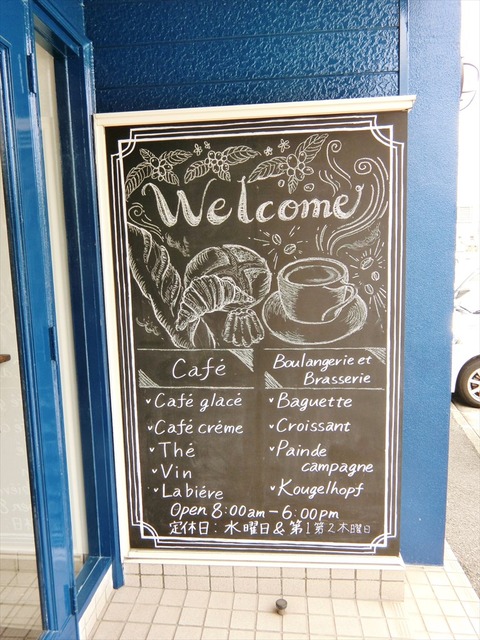 Welcome
Café
Café glacé
Café créme
Thé
Vin
La biére
Boulangerie et
Brasserie
Baguette
Croissant
Painde
campagne
Kougelhopf
Open 8:00am-6:00pm
定休日: 水曜日&第1第2木曜日